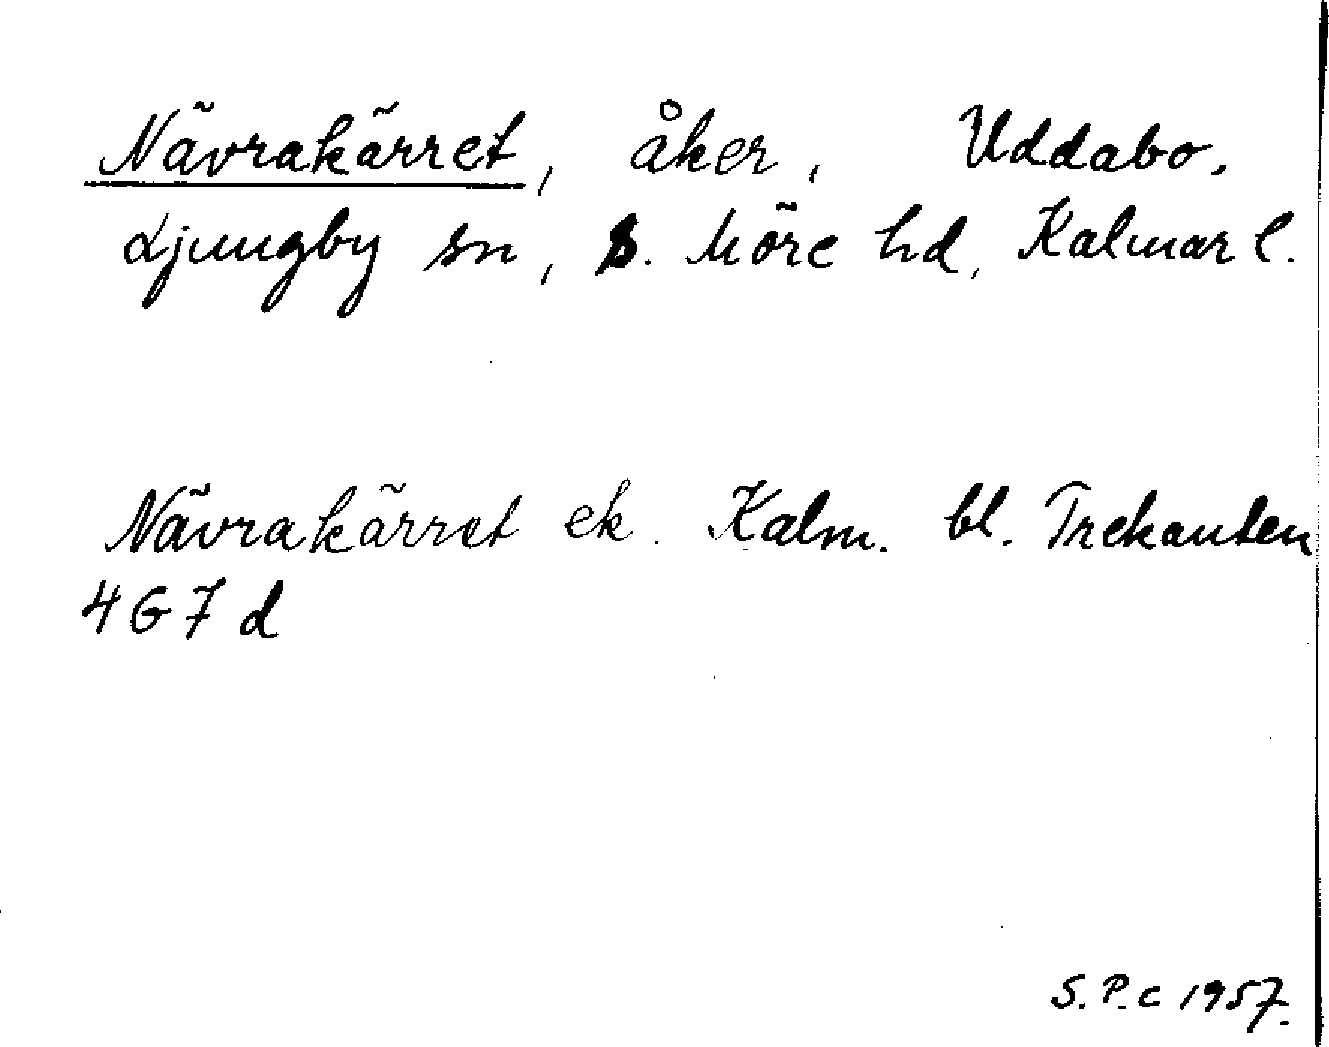 Nävrakärret, åker, Uddabo,
Ljungby sn, S. Möre hd, Kalmar l.
Nävrakärret ek. Kalm. bl. Trekanten
4 G 7 d
S.P.c 1957.